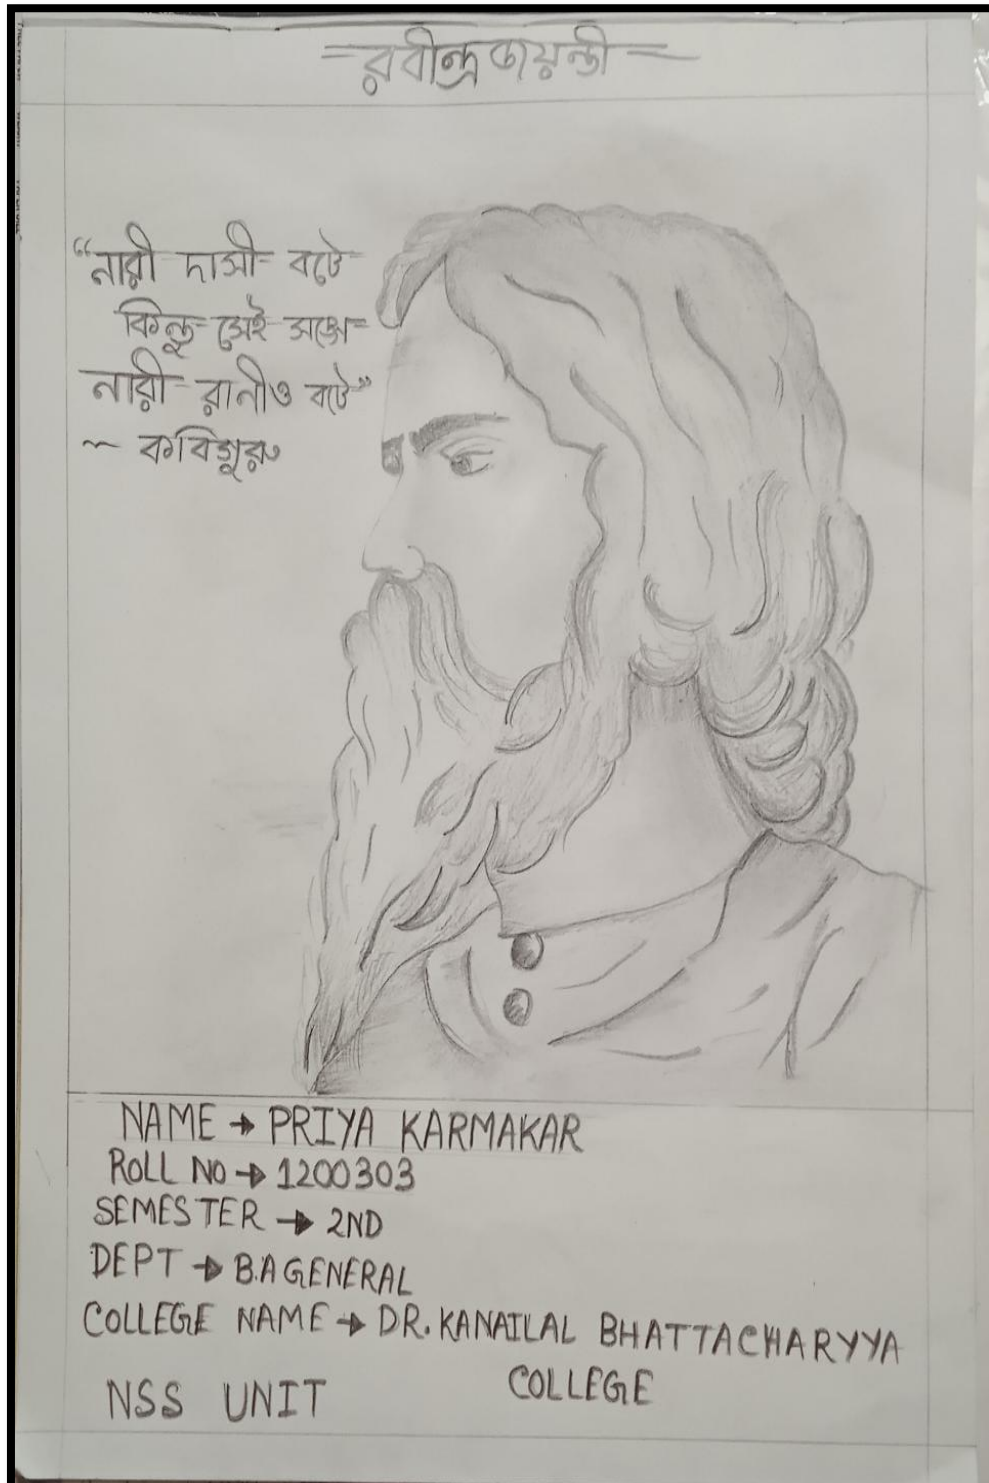 রবীন্দ্র জয়ন্তী
“নারী দাসী বটে
কিন্তু সেই সঙ্গে
নারী রানীও বটে”
~ কবিগুরু
NAME → PRIYA KARMAKAR
ROLL NO → 1200303
SEMESTER → 2ND
DEPT → B.A GENERAL
COLLEGE NAME → DR. KANAILAL BHATTACHARYYA
COLLEGE
NSS UNIT